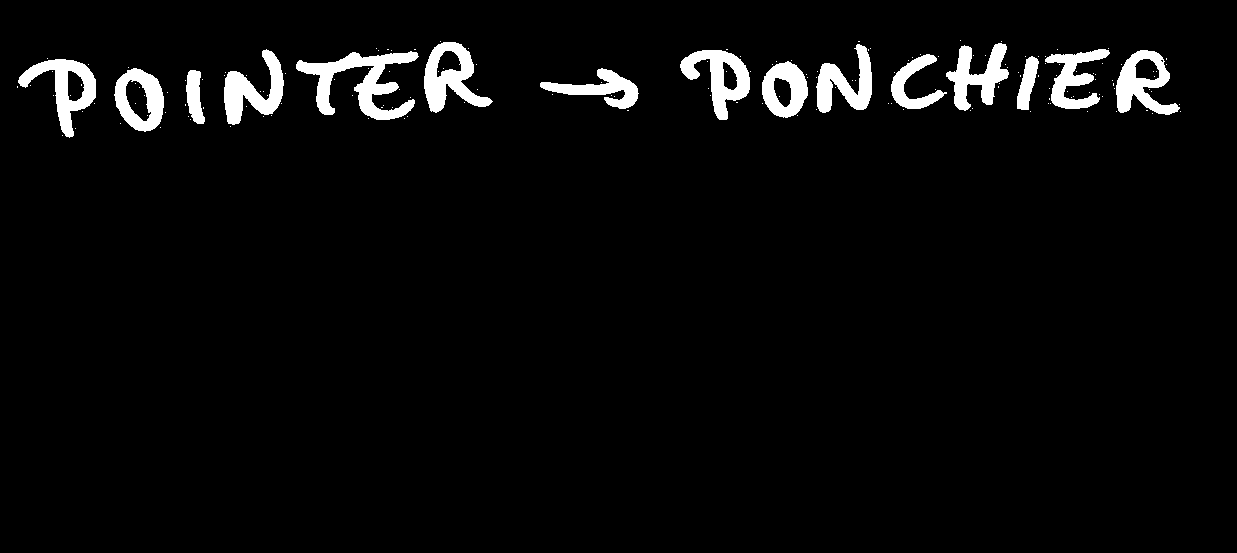 POINTER → PONCHIER